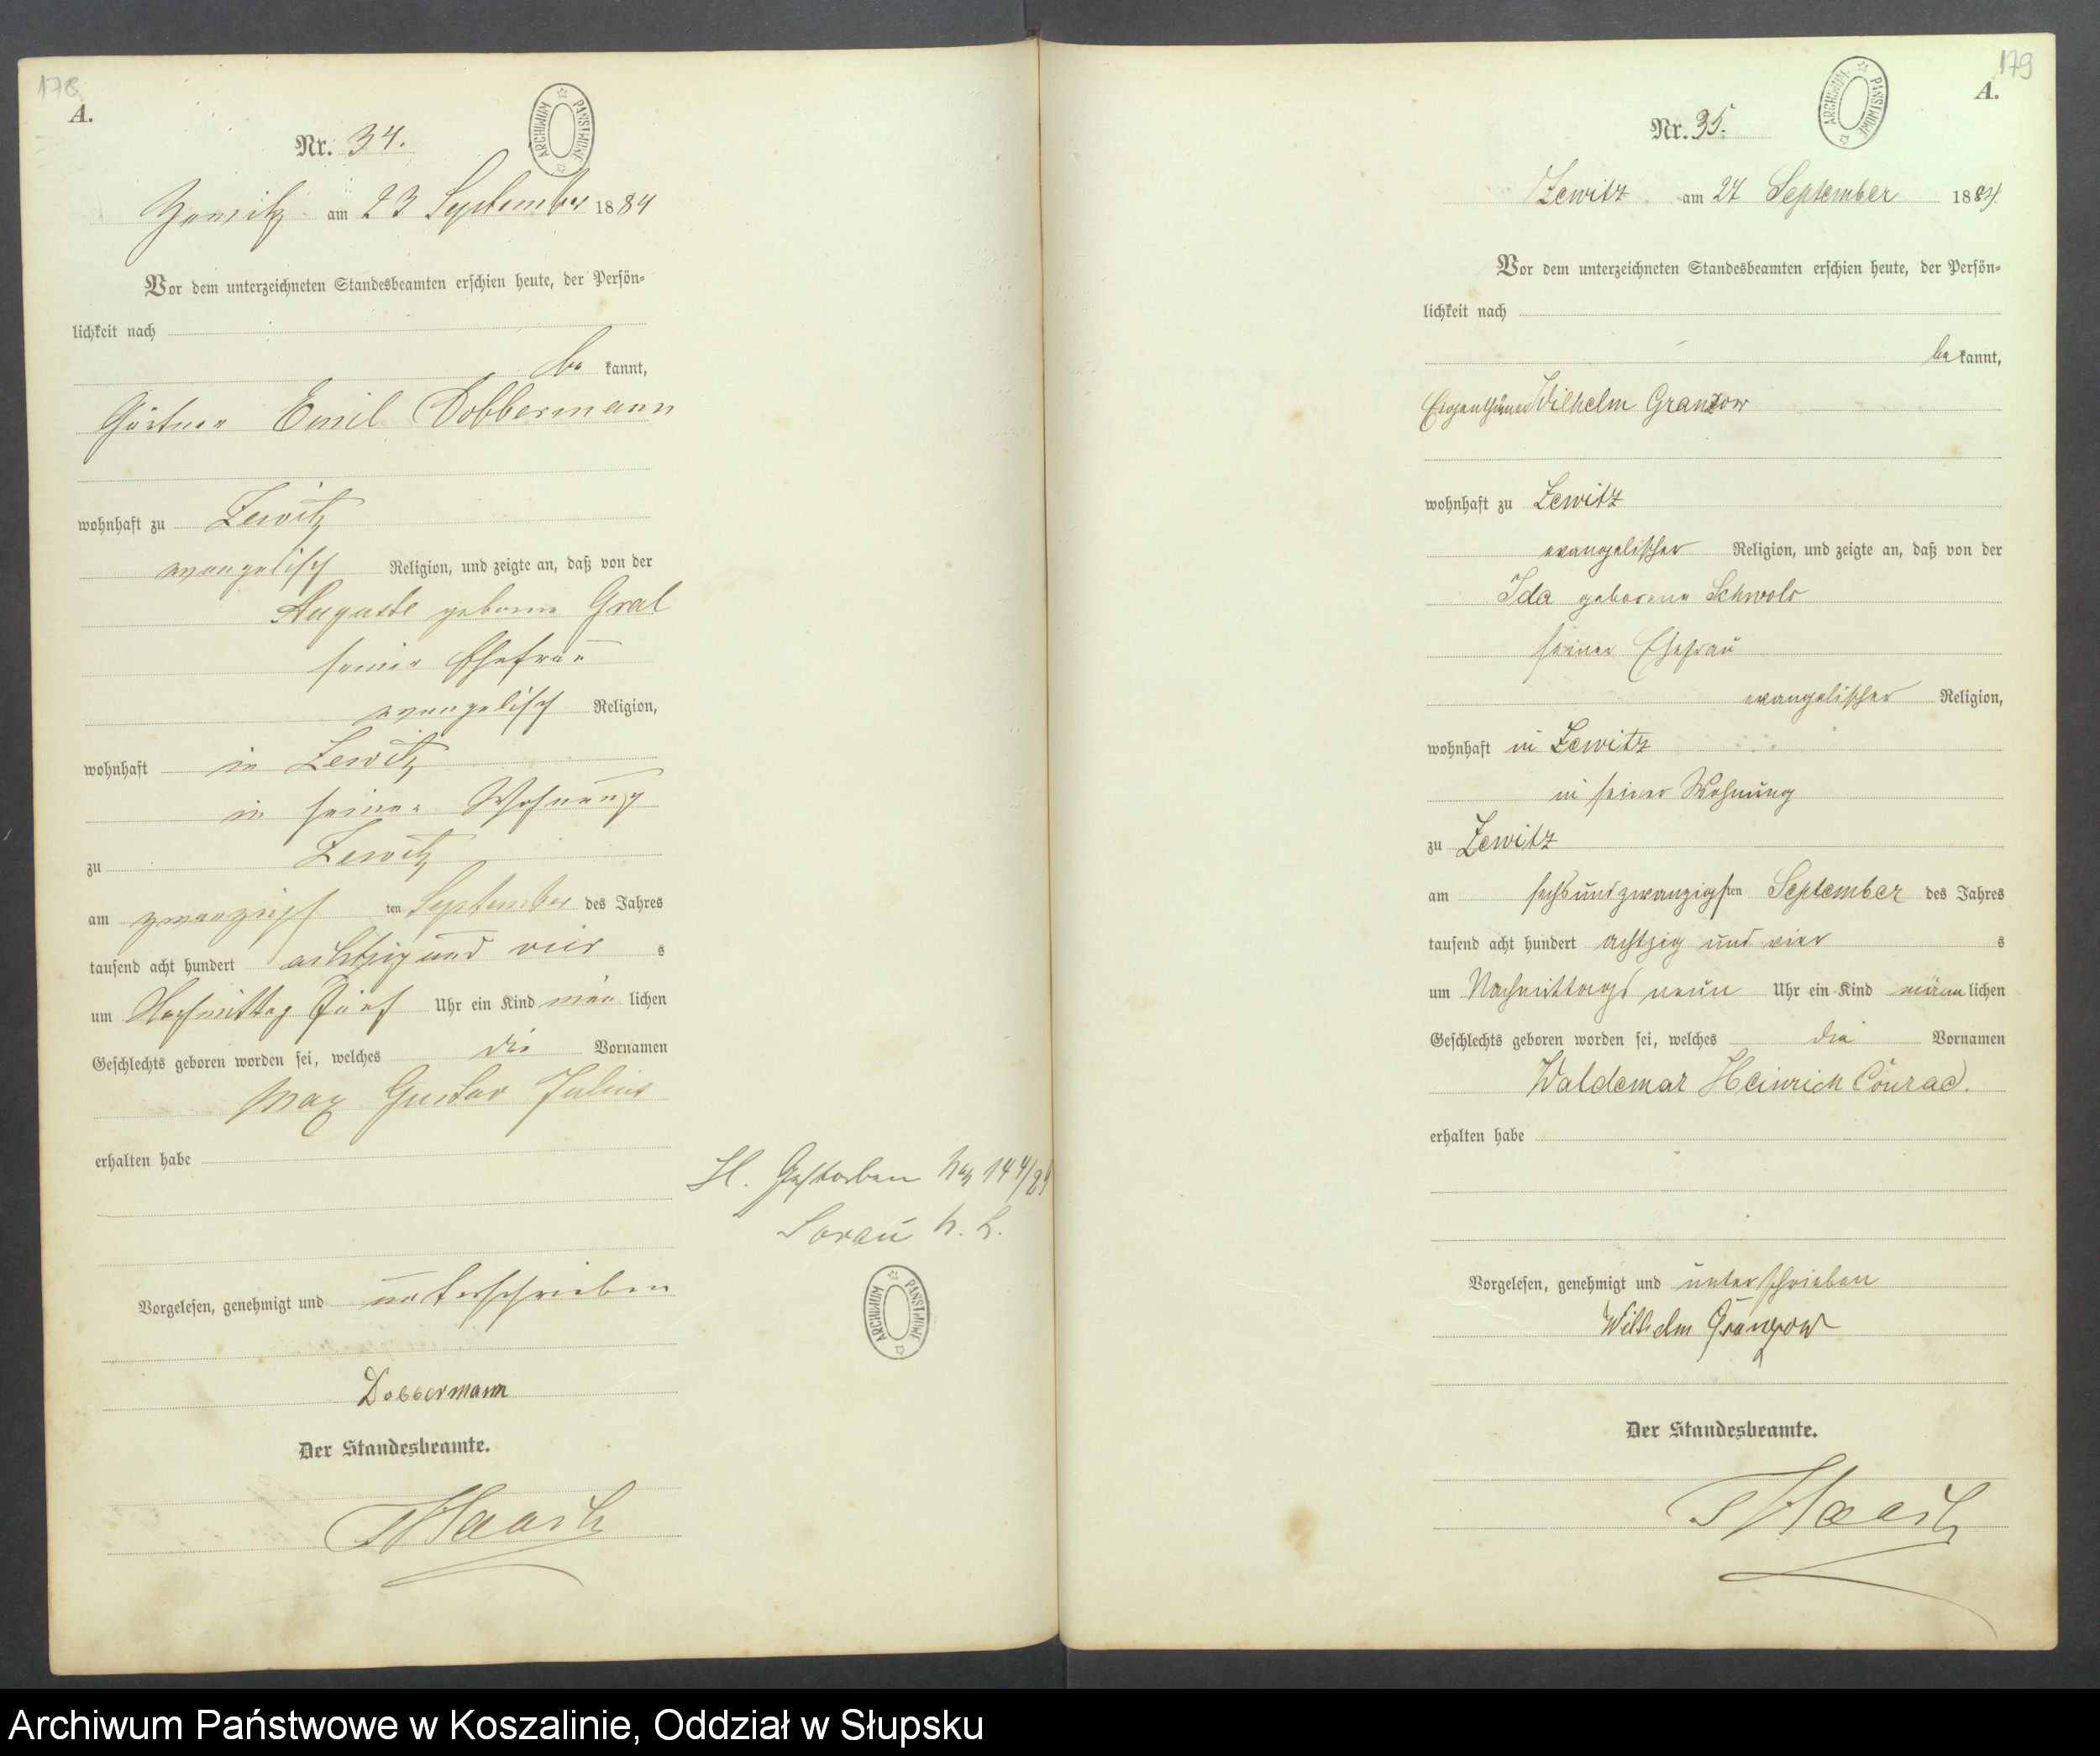 178
A.
ARCHIWUM PAŃSTWOWE
Nr. 34.
Zewitz am 23 September 1884
Vor dem unterzeichneten Standesbeamten erschien heute, der Persön-
lichkeit nach
be kannt,
Gärtner Emil Dobbermann
wohnhaft zu Zewitz
evangelisch Religion, und zeigte an, daß von der
Auguste geborne Gral
seiner Ehefrau
evangelisch Religion,
wohnhaft in Zewitz
in seiner Wohnung
zu Zewitz
am zwanzigst ten September des Jahres
tausend acht hundert achtzig und vier s
um Nachmittag fünf Uhr ein Kind män lichen
Geschlechts geboren worden sei, welches die Vornamen
Max Gustav Julius
erhalten habe
H. Gestorben No 144/
Sorau N. L.
ARCHIWUM PAŃSTWOWE
Vorgelesen, genehmigt und unterschrieben
Dobbermann
Der Standesbeamte.
179
A.
ARCHIWUM PAŃSTWOWE
Nr. 35.
Zewitz am 27 September 1884
Vor dem unterzeichneten Standesbeamten erschien heute, der Persön-
lichkeit nach
be kannt,
Eigenthümer Wilhelm Granzow
wohnhaft zu Zewitz
evangelischer Religion, und zeigte an, daß von der
Ida geborene Schwols
seiner Ehefrau
evangelischer Religion,
wohnhaft in Zewitz
in seiner Wohnung
zu Zewitz
am sechsundzwanzigsten September des Jahres
tausend acht hundert achtzig und vier s
um Nachmittags neun Uhr ein Kind männ lichen
Geschlechts geboren worden sei, welches die Vornamen
Waldemar Heinrich Conrad.
erhalten habe
Vorgelesen, genehmigt und unterschrieben
Wilhelm Granzow
Der Standesbeamte.
Archiwum Państwowe w Koszalinie, Oddział w Słupsku